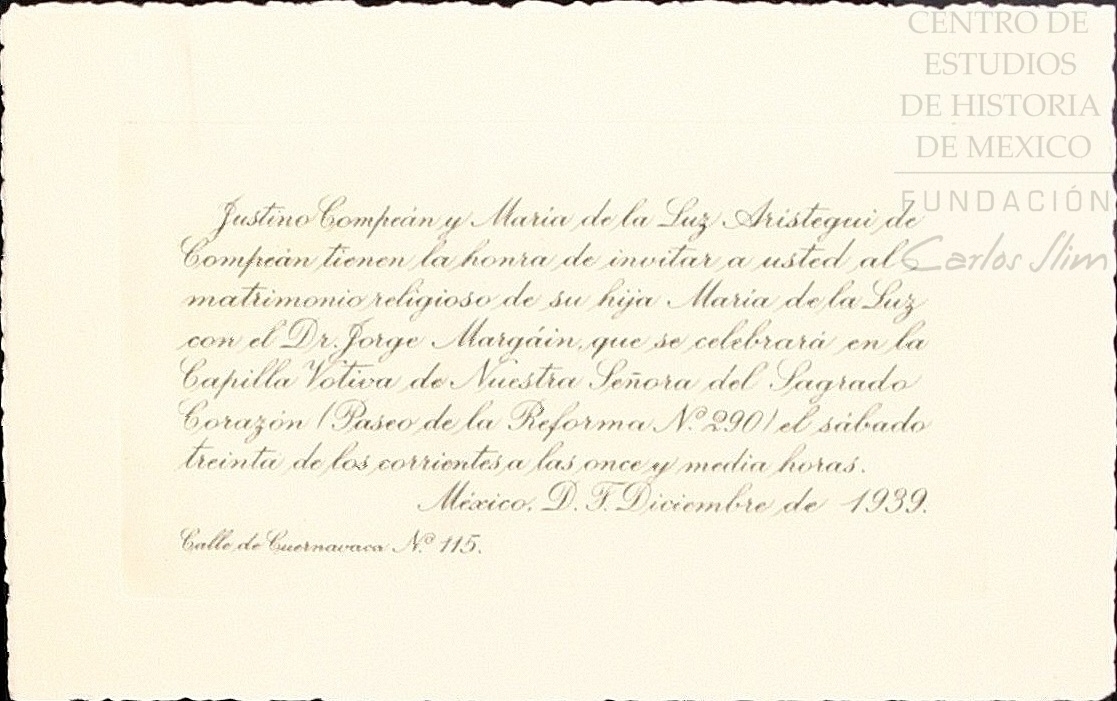 CENTRO DE
ESTUDIOS
DE HISTORIA
DE MEXICO
FUNDACIÓN
Carlos Slim
Justino Compeán y María de la Luz Aristegui de
Compeán tienen la honra de invitar a usted al
matrimonio religioso de su hija María de la Luz
con el Dr. Jorge Margáin, que se celebrará en la
Capilla Votiva de Nuestra Señora del Sagrado
Corazón (Paseo de la Reforma Nº 290) el sábado
treinta de los corrientes a las once y media horas.
México, D. F. Diciembre de 1939.
Calle de Cuernavaca Nº 115.